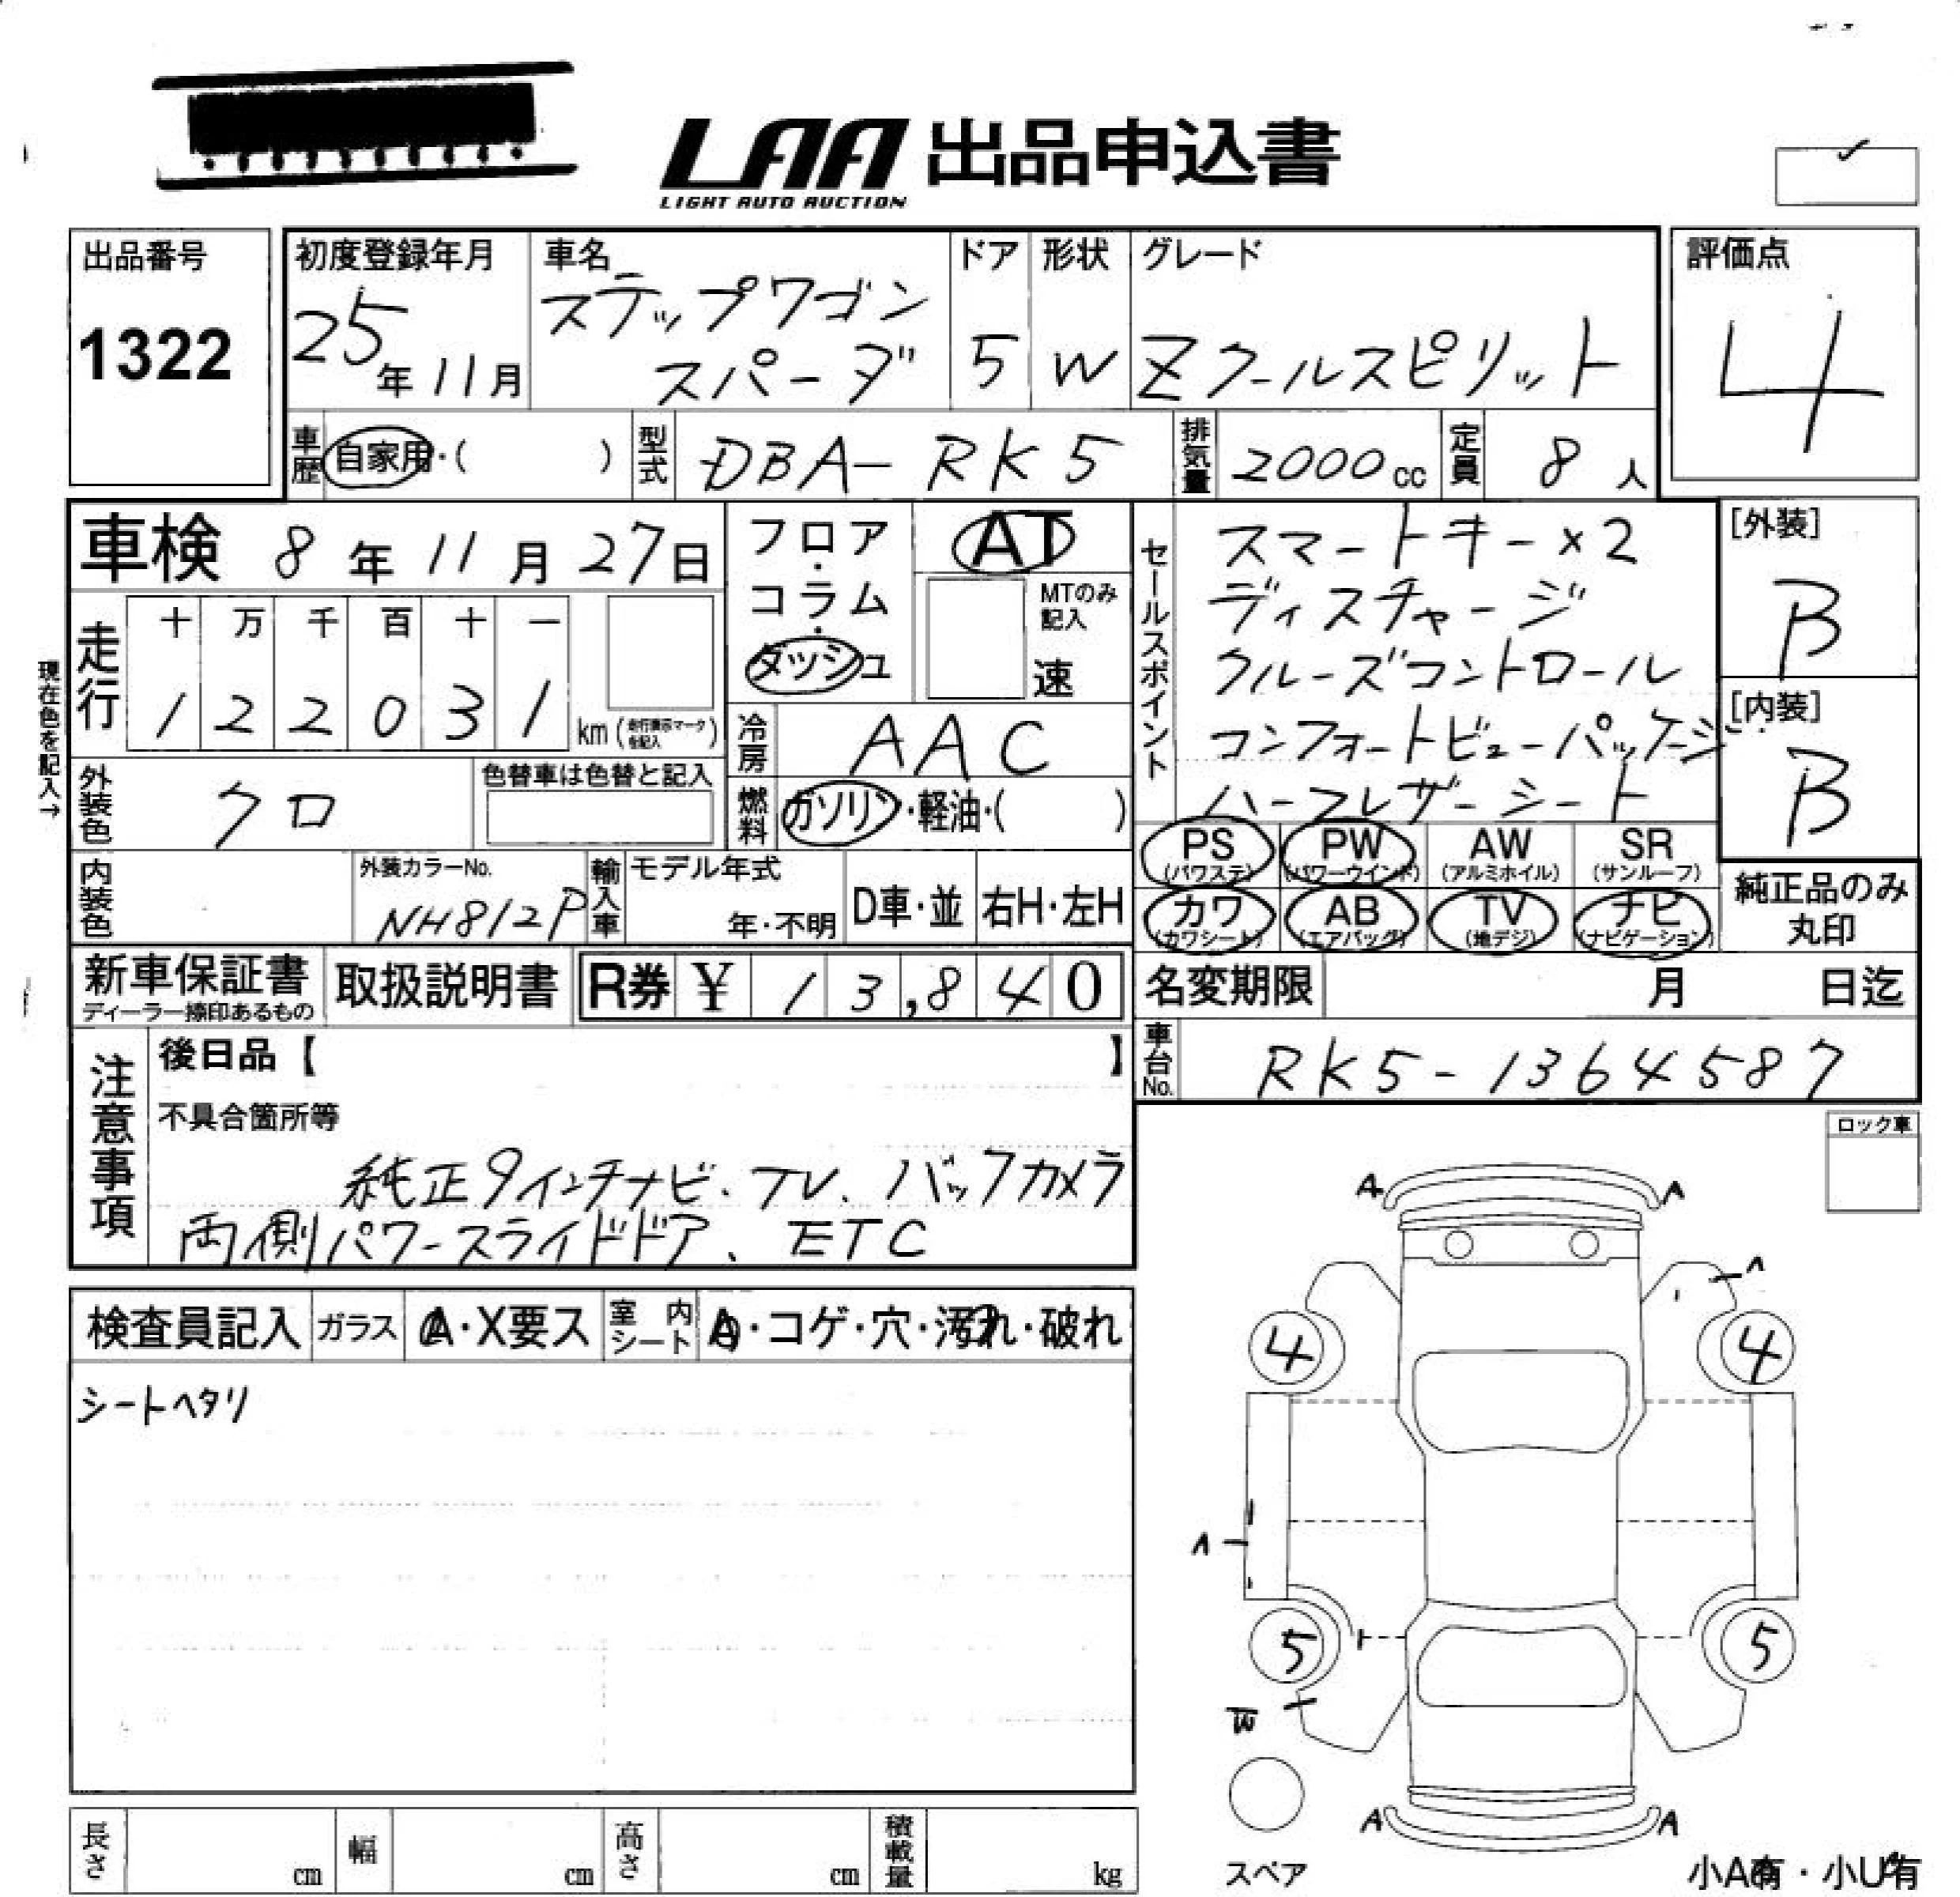 LAA 出品申込書
LIGHT AUTO AUCTION
出品番号
1322
初度登録年月
25年11月
車名
ステップワゴン
スパーダ
ドア
5
形状
W
グレード
Zクールスピリット
評価点
4
車歴 自家用・( )
型式 DBA-RK5
排気量 2000cc
定員 8人
車検 8年11月27日
フロア・コラム・ダッシュ
AT
MTのみ記入
速
セールスポイント
スマートキー×2
ディスチャージ
クルーズコントロール
コンフォートビューパッケージ
ハーフレザーシート
[外装]
B
[内装]
B
現在色を記入→
走行
十 万 千 百 十 一
1 2 2 0 3 1
km(走行表示マークを記入)
冷房 AAC
燃料 ガソリン・軽油・( )
外装色 クロ
色替車は色替と記入
PS (パワステ)
PW (パワーウインド)
AW (アルミホイル)
SR (サンルーフ)
カワ (カワシート)
AB (エアバッグ)
TV (地デジ)
ナビ (ナビゲーション)
純正品のみ
丸印
内装色
外装カラーNo.
NH812P
輸入車
モデル年式
年・不明
D車・並
右H・左H
新車保証書
ディーラー捺印あるもの
取扱説明書
R券 ¥ 13,840
名変期限 月 日迄
車台No. RK5-1364587
注意事項
後日品【 】
不具合箇所等
純正9インチナビ.TV.バックカメラ
両側パワースライドドア、ETC
ロック車
検査員記入
ガラス
A・X要ス
室内シート
A・コゲ・穴・汚れ・破れ
シートヘタリ
A A
A
4 4
A
5 5
W
A A
スペア
長さ cm
幅 cm
高さ cm
積載量 kg
小A有・小U有